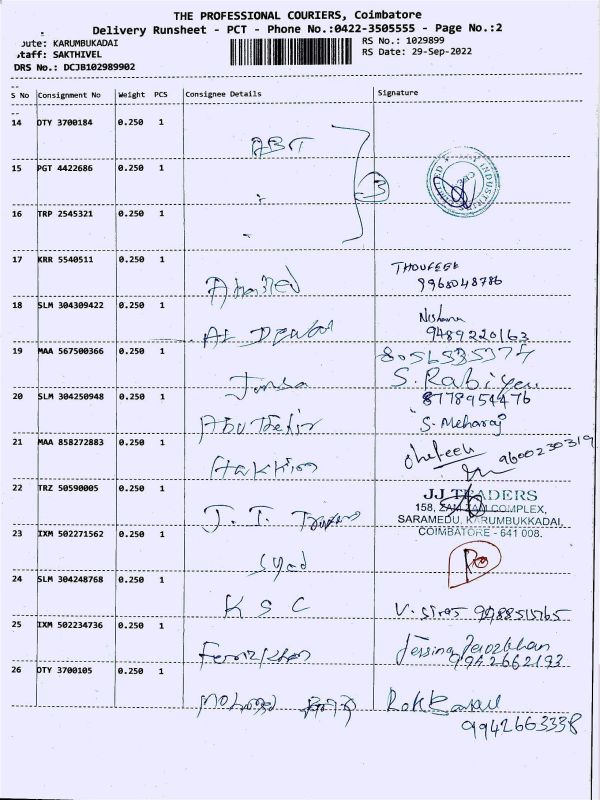 THE PROFESSIONAL COURIERS, Coimbatore
Delivery Runsheet - PCT - Phone No.:0422-3505555 - Page No.:2
oute: KARUMBUKADAI
taff: SAKTHIVEL
DRS No.: DCJB102989902
RS No.: 1029899
RS Date: 29-Sep-2022
S No Consignment No Weight PCS Consignee Details Signature
14 DTY 3700184 0.250 1
ABT
3
15 PGT 4422686 0.250 1
16 TRP 2545321 0.250 1
17 KRR 5540511 0.250 1
Ahamed
THOUFEEK
9965048786
18 SLM 304309422 0.250 1
AL
Nishana
9489220163
19 MAA 567500366 0.250 1
8056535374
S. Rabiyeu
20 SLM 304250948 0.250 1
Abu Thekir
8778954476
S. Meharaj
21 MAA 858272883 0.250 1
9600230319
22 TRZ 50590005 0.250 1
J. I. Traders
JJ TRADERS
158, ZAM ZAM COMPLEX,
SARAMEDU, KARUMBUKKADAI,
COIMBATORE - 641 008.
23 IXM 502271562 0.250 1
Syad
24 SLM 304248768 0.250 1
K S C
V. 9488515765
25 IXM 502234736 0.250 1
Feroz Khan
Jerozkhan
9942662193
26 DTY 3700105 0.250 1
Mohamed
9942663338